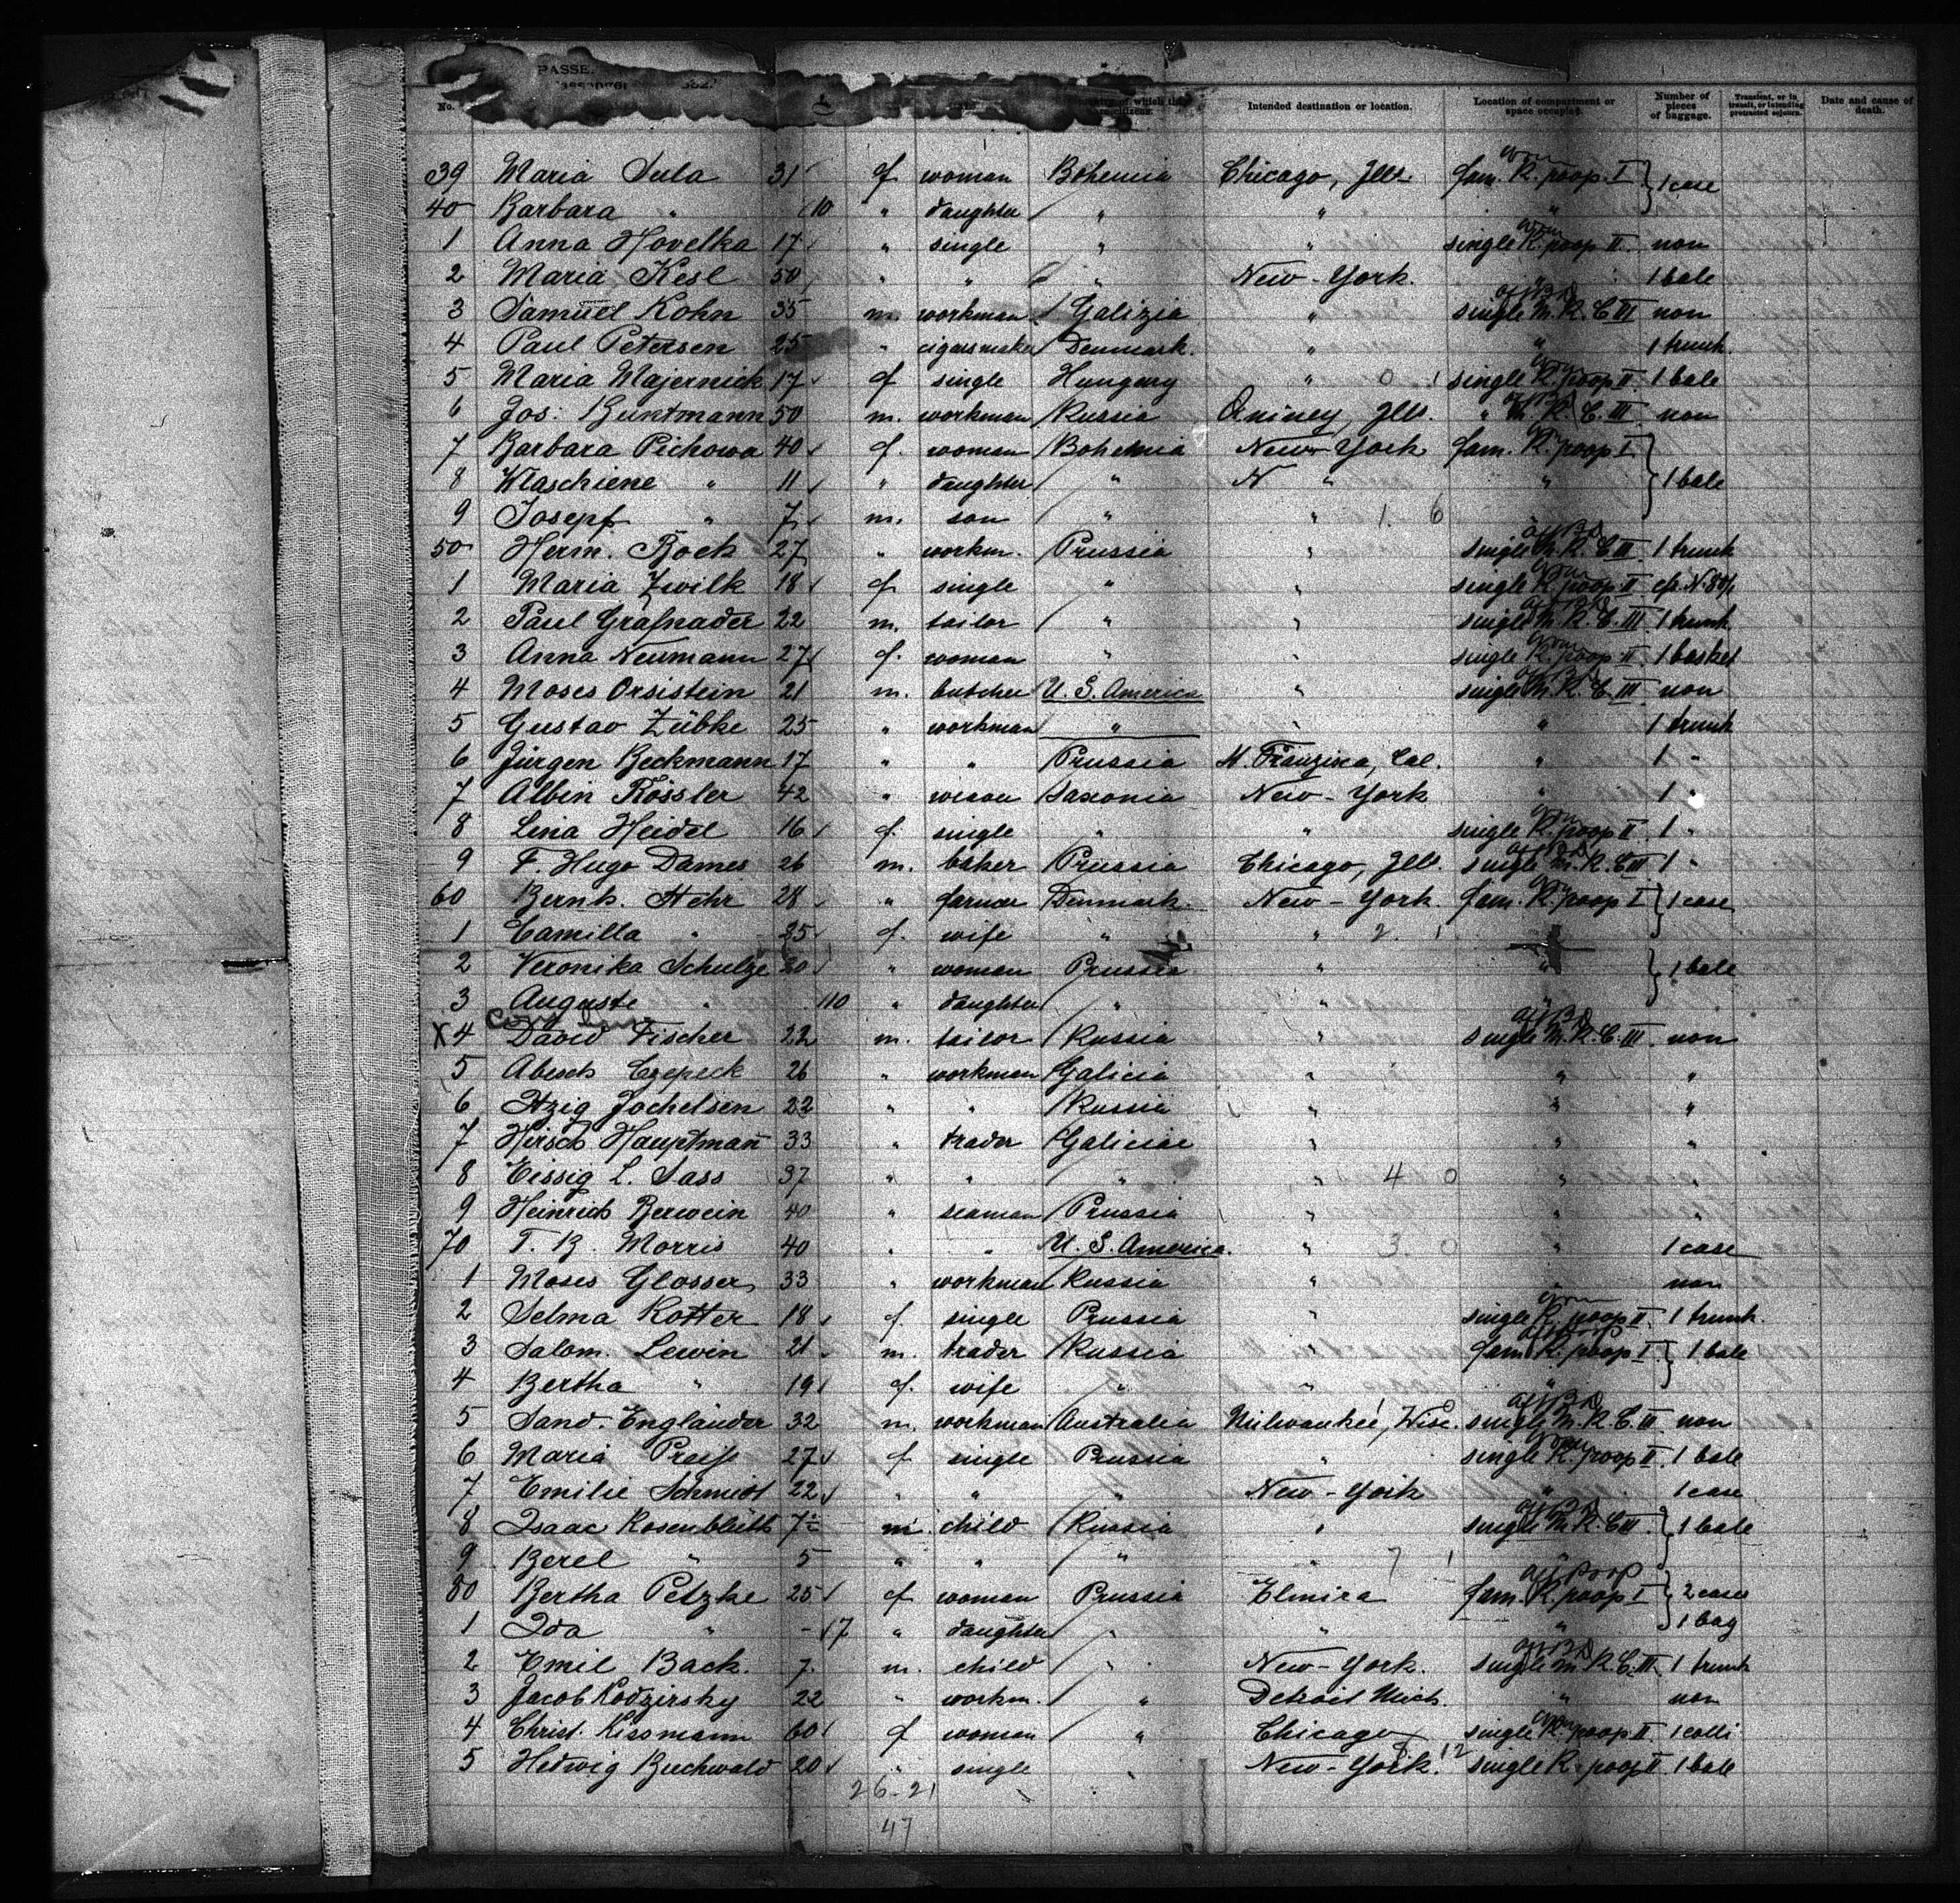 PASSE
No. country of which they are citizens. Intended destination or location. Location of compartment or space occupied. Number of pieces of baggage. Transient, or in transit, or intending protracted sojourn. Date and cause of death.
39 Maria Sula 31 f woman Bohemia Chicago, Ills fam. R. poop. I } 1 case
40 Barbara " 10 " daughter " " "
1 Anna Hovelka 17 " single " " single R. poop II non
2 Maria Kesl 50 " " " New-York. " 1 bale
3 Samuel Kohn 35 m. workman Galizia " single M. R. C. III non
4 Paul Petersen 25 " cigarsmaker Denmark. " " 1 trunk.
5 Maria Majernick 17 f single Hungary " 0 1 single R. poop II 1 bale
6 Jos: Buntmann 50 m. workman Russia Quincy, Ills. " M. R. C. III non
7 Barbara Pichowa 40 f. woman Bohemia New-York fam. R. poop I } 1 bale
8 Wlaschiene " 11 " daughter " N " "
9 Josepf " 7 m. son " " 1. 6 "
50 Herm. Bock 27 " workm. Prussia " single M. R. C. III 1 trunk
1 Maria Zwilk 18 f single " " single R. poop II cf. N. 80/1
2 Paul Grafnader 22 m. tailor " " single M. R. C. III 1 trunk
3 Anna Neumann 27 f. woman " " single R. poop II 1 basket
4 Moses Orsistein 21 m. butcher U. S. America " single M. R. C. III non
5 Gustav Zübke 25 " workman " " " 1 trunk
6 Jürgen Beckmann 17 " " Prussia Cal. " 1 "
7 Albin Rössler 42 " Saxonia New-York " 1 "
8 Lina Heidel 16 f. single " " single R. poop II 1 "
9 F. Hugo Dames 26 m. baker Prussia Chicago, Ills. single M. R. C. III 1 "
60 Bernh. Stehr 28 " farmer Denmark. New-York. fam. R. poop I } 1 case
1 Camilla " 25 f. wife " " 2. 1 "
2 Veronika Schulze 20 " woman Prussia " " } 1 bale
3 Auguste " 10 " daughter " " "
X 4 David Fischer 22 m. tailor Russia " single M. R. C. III. non
5 Abesch Czepeck 26 " workman Galicia " " "
6 Itzig Jochelsen 22 " " Russia " " "
7 Hirsch Hauptmann 33 " trader Galiciae " " "
8 Eissig L. Sass 37 " " " " 4 0 " "
9 Heinrich Berwein 40 " seaman Prussia " " "
70 T. B. Morris 40 " " U. S. America. " 3. 0 " 1 case
1 Moses Glosser 33 " workman Russia " " non
2 Selma Kotter 18 f. single Prussia " single R. poop II. 1 trunk.
3 Salom. Lewin 21 m. trader Russia " fam. R. poop I } 1 bale
4 Bertha " 19 f. wife " " "
5 Sand. Engländer 32 m. workman Australia Milwaukee, Wisc. single M. R. C. III non
6 Maria Preiss 27 f single Prussia " single R. poop II. 1 bale
7 Emilie Schmidt 22 " " " New-York " 1 case
8 Isaac Rosenblüth 7 m. child Russia " single M. R. C. III } 1 bale
9 Berel " 5 " " " " 7 1 "
80 Bertha Petzke 25 f woman Prussia Elmira fam. R. poop I } 2 cases
1 Ida " 7 " daughter " " " 1 bag
2 Emil Back. 7. m. child " New-York. single M. R. C. III. 1 trunk
3 Jacob Kodzirsky 22 " workm. " Detroit Mich. " non
4 Christ. Kissmann 60 f woman " Chicago single R. poop II. 1 colli
5 Hedwig Buchwald 20 " single " New-York. 8 12 single R. poop II. 1 bale
26-21
47